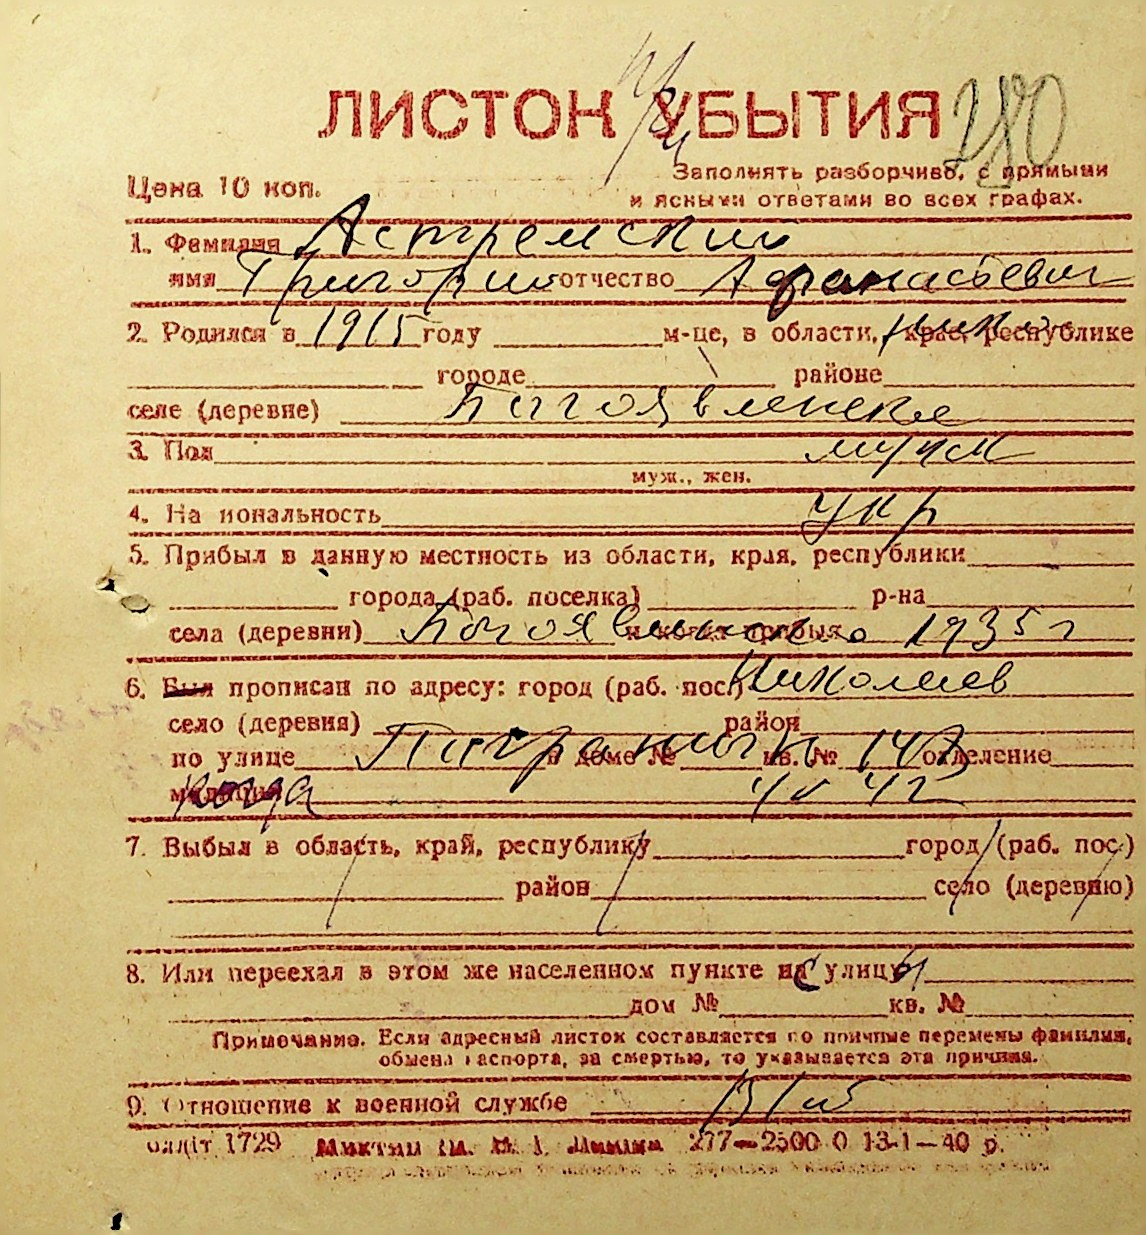 ЛИСТОК УБЫТИЯ 280
Цена 10 коп.
Заполнять разборчиво, с прямыми
и ясными ответами во всех графах.
1. Фамилия Астремский
имя Григорий отчество Афанасьевич
2. Родился в 1915 году м-це, в области, крае, республике
городе районе
селе (деревне)
3. Пол муж
муж., жен.
4. На иональность укр
5. Прибыл в данную местность из области, края, республики
города (раб. поселка) р-на
села (деревни) 1935 г
6. Был прописан по адресу: город (раб. пос.) Николаев
село (деревня) район
по улице в доме № кв. № отделение
милиции
7. Выбыл в область, край, республику город (раб. пос.)
район село (деревню)
8. Или переехал в этом же населенном пункте с улицы
дом № кв. №
Примечание. Если адресный листок составляется по причине перемены фамилии,
обмена паспорта, за смертью, то указывается эта причина.
9. Отношение к военной службе
1729 277—2500 0 13-1—40 р.